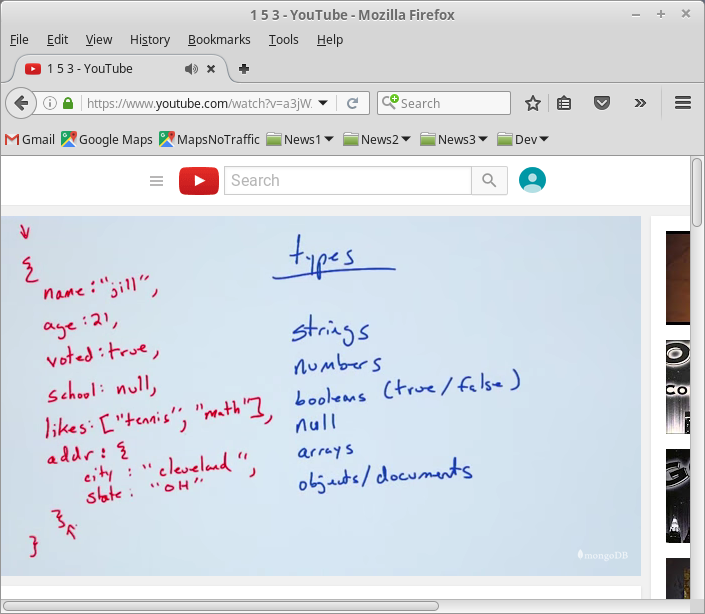 1 5 3 - YouTube - Mozilla Firefox
File Edit View History Bookmarks Tools Help
1 5 3 - YouTube
https://www.youtube.com/watch?v=a3jW
Search
Gmail Google Maps MapsNoTraffic News1 News2 News3 Dev
Search
types
{
name:"jill",
age:21,
voted:true,
school: null,
likes:["tennis", "math"],
addr: {
city : "cleveland",
state: "OH"
}
}
strings
numbers
booleans (true/false)
null
arrays
objects/documents
mongoDB
CO